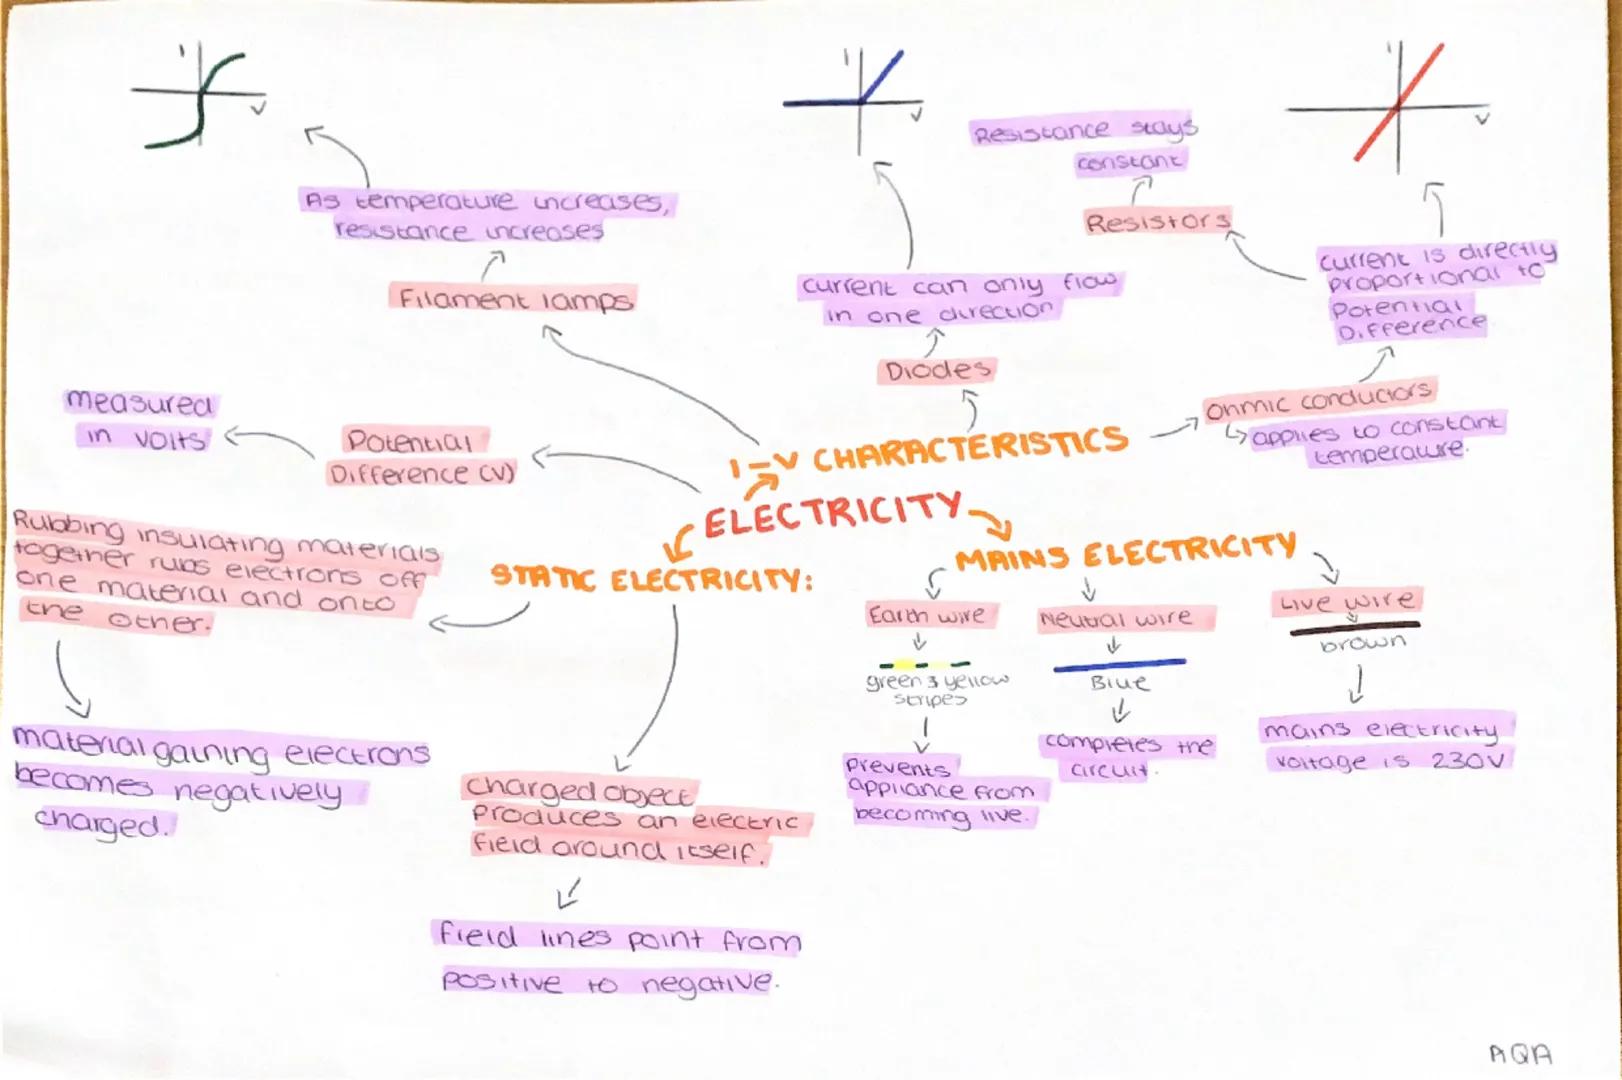 I
V
As temperature increases,
resistance increases
Filament lamps
I
V
current can only flow
in one direction
Diodes
Resistance stays
constant
Resistors
I
V
current is directly
proportional to
Potential
Difference
Ohmic conductors
applies to constant
temperature.
I-V CHARACTERISTICS
ELECTRICITY
Potential
Difference (V)
measured
in volts
STATIC ELECTRICITY:
Rubbing insulating materials
together rubs electrons off
one material and onto
the other.
material gaining electrons
becomes negatively
charged.
charged object
produces an electric
field around itself.
field lines point from
positive to negative.
MAINS ELECTRICITY
Earth wire
green & yellow
stripes
prevents
appliance from
becoming live.
Neutral wire
Blue
completes the
circuit.
Live wire
brown
mains electricity
voltage is 230V
AQA